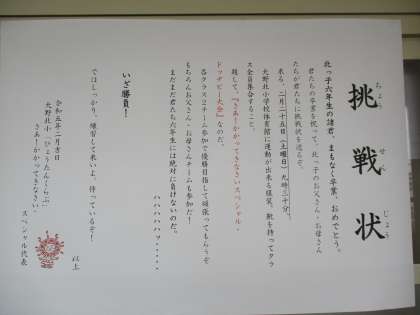 挑戦状
ちょう
せん
じょう
北っ子六年生の諸君、まもなく卒業、おめでとう。
君たちの卒業を祝って、北っ子のお父さん・お母さん
たちが君たちに挑戦状を送るぞ。
来る、二月二十五日（土曜日）九時三十分、
大野北小学校体育館に運動が出来る服装、靴を持ってクラ
ス全員集合すること。
題して、『さあ！かかってきなさいスペシャル・
ドッチビー大会』なのだ。
各クラス２チーム参加で優勝目指して頑張ってもらうぞ
もちろんお父さん・お母さんチームも参加だ！
まだまだ君たち六年生には絶対に負けないのだ。
ハハハハハッ・・・・・
いざ勝負！
ではしっかり、練習して来いよ、待っているぞ！
以上
令和五年二月吉日
大野北小「ひょうたんくらぶ」
さあ！かかってきなさい。
スペシャル代表